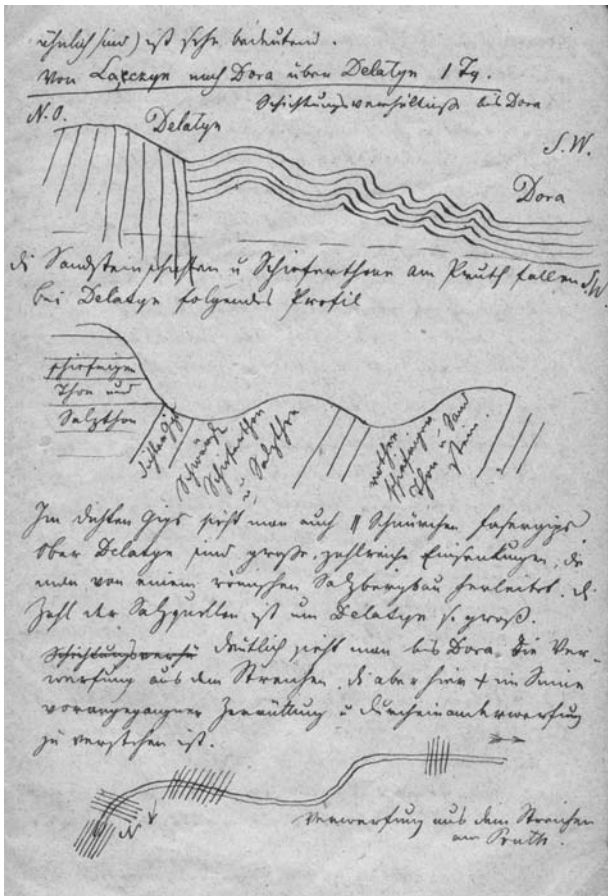 ähnlich sind) ist sehr bedeutend.
Von Lapczyn nach Dora über Delatyn 1 Tg.
Schichtungsverhältniß bis Dora
N. O.
Delatyn
S. W.
Dora
di Sandsteinschichten u Schieferthone am Pruth fallen S.W.
bei Delatyn folgendes Profil
schiefrigen
Thon und
Salzthon
dichten Gips
Schwarze
Schieferthon
u Salzthon
rothen
schiefrigen
Thon u Sand
stein.
Im dichten Gips sieht man auch Schnürchen fasergips
Ober Delatyn sind große, zahlreiche Einsenkungen, die
man von einem römischen Salzbergbau herleitet. di
Zahl der Salzquellen ist um Delatyn s. groß.
Schichtungsverhä deutlich sieht man bis Dora. Die Ver-
werfung aus dem Streichen, di aber hier im Sinne
vorangegangner Zerrüttung u durcheinanderwerfung
zu verstehen ist.
N
Verwerfung aus dem Streichen
am Pruth.